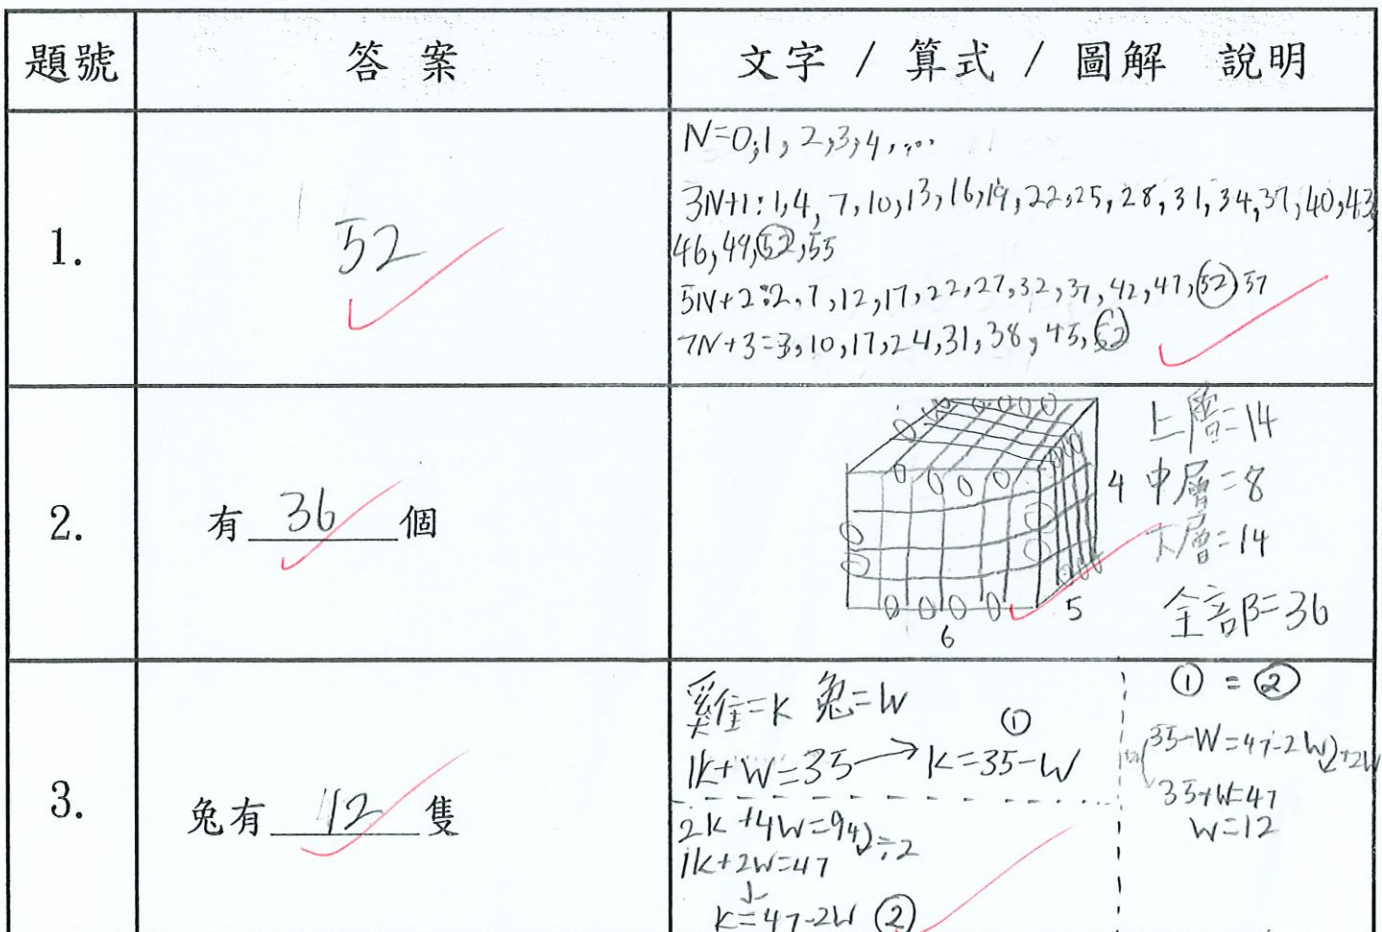 題號 答案 文字 / 算式 / 圖解 說明
1. 52
N=0,1,2,3,4,...
3N+1:1,4,7,10,13,16,19,22,25,28,31,34,37,40,43,
46,49,52,55
5N+2:2,7,12,17,22,27,32,37,42,47,52,57
7N+3=3,10,17,24,31,38,45,52
2. 有 36 個
4
5
6
上層=14
中層=8
下層=14
全部=36
3. 兔有 12 隻
雞=K 兔=W
1K+W=35→K=35-W ①
2K+4W=94 ÷2
1K+2W=47
↓
K=47-2W ②
①=②
35-W=47-2W +2W
35+W=47
W=12